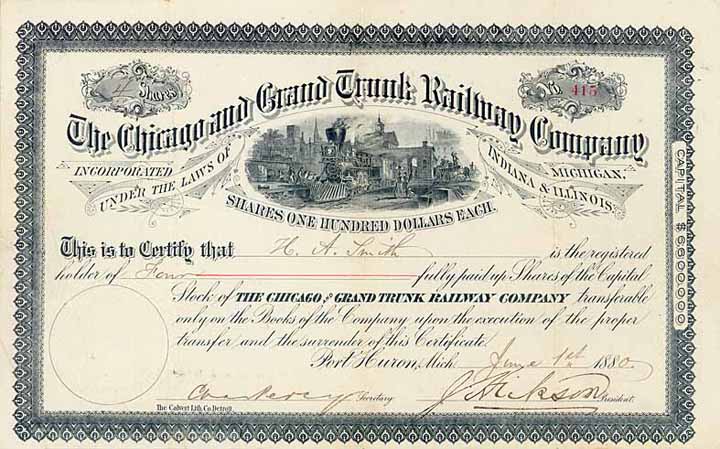 4 Shares
No. 415
The Chicago and Grand Trunk Railway Company
INCORPORATED UNDER THE LAWS OF MICHIGAN, INDIANA & ILLINOIS
SHARES ONE HUNDRED DOLLARS EACH.
CAPITAL $6600000
This is to Certify that H. A. Smith is the registered
holder of Four fully paid up Shares of the Capital
Stock of THE CHICAGO AND GRAND TRUNK RAILWAY COMPANY transferable
only on the Books of the Company upon the execution of the proper
transfer and the surrender of this Certificate.
Port Huron, Mich. June 1st 1880.
Chas Percy Secretary. J Hickson President.
The Calvert Lith. Co. Detroit.